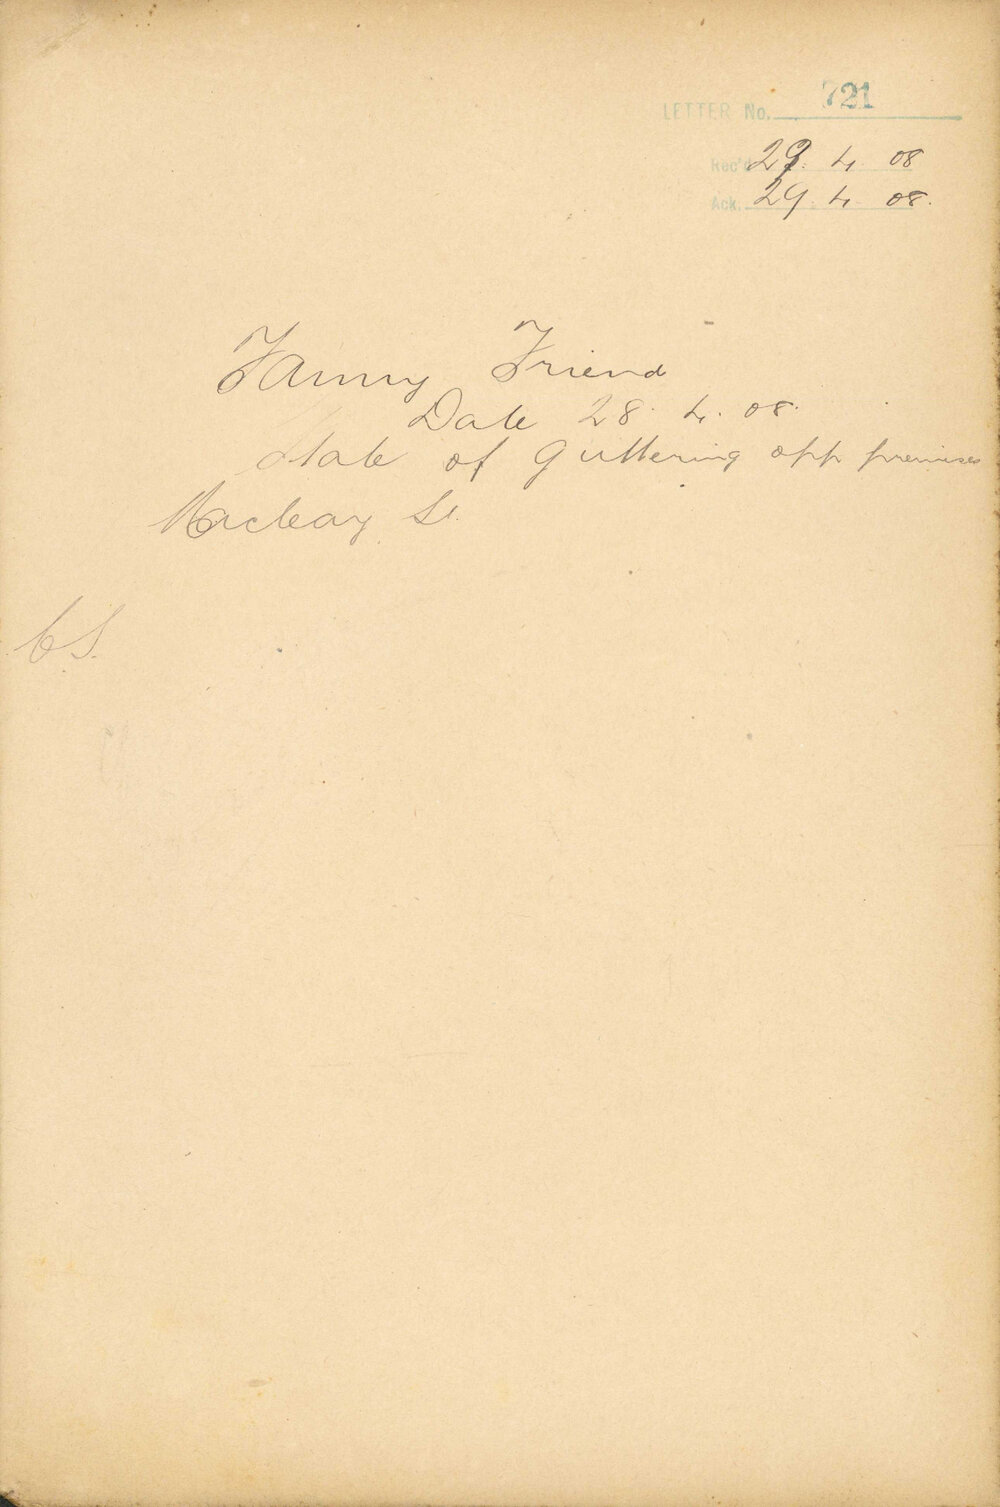 LETTER No. 721
Rec'd 29. 4. 08
Ack. 29. 4. 08.
Fanny Friend
Date 28. 4. 08.
State of Guttering opp premises
Macleay St.
C.S.